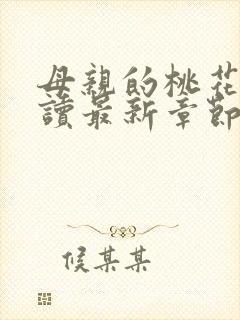 母親的桃花
讀最新章節
候某某